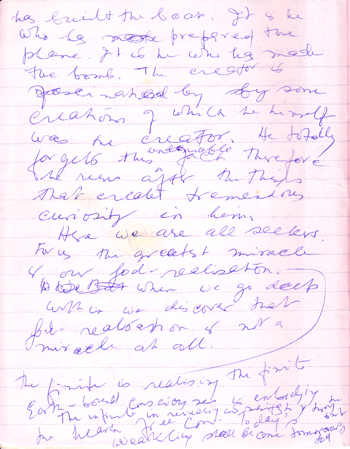 has built the boat. It is he
who has prepared the
plane. It is he who has made
the bomb. The creator is
fascinated by by some
creations of which he himself
was the creator. He totally
forgets this undeniable fact. Therefore
he runs after the things
that create tremendous
curiosity in him.
Here we are all seekers.
For us the greatest miracle
is our God-realisation.
when we go deep
within we discover that
God-realisation is not a
miracle at all.
The finite is realising the finite
Earth-bound consciousness is embodying
The infinite is revealing
the heaven Free Con- today's
weakling shall become tomorrow's